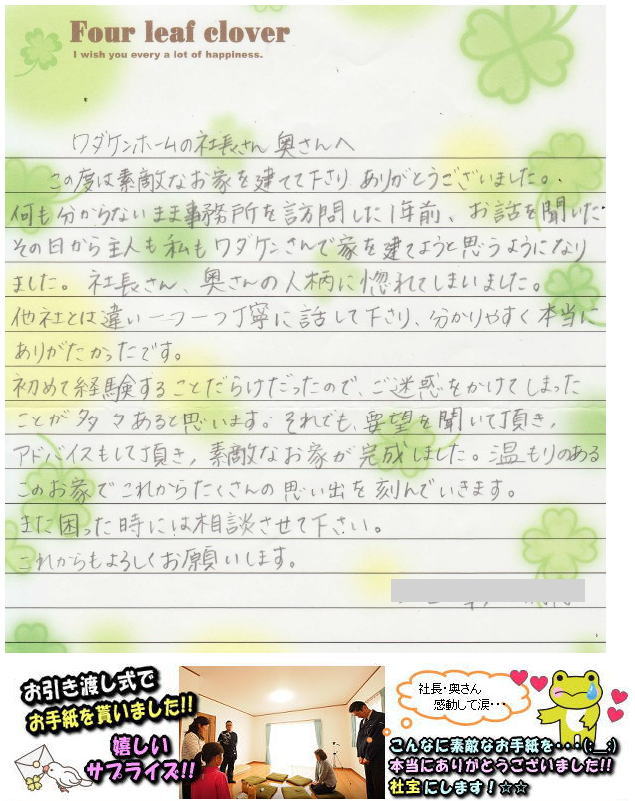 Four leaf clover
I wish you every a lot of happiness.
ワダケンホームの社長さん 奥さんへ
この度は素敵なお家を建てて下さり ありがとうございました。
何も分からないまま事務所を訪問した1年前、お話を聞いた
その日から主人も私もワダケンさんで家を建てようと思うようになり
ました。社長さん、奥さんの人柄に惚れてしまいました。
他社とは違い一つ一つ丁寧に話して下さり、分かりやすく本当に
ありがたかったです。
初めて経験することだらけだったので、ご迷惑をかけてしまった
ことが多々あると思います。それでも、要望を聞いて頂き、
アドバイスもして頂き、素敵なお家が完成しました。温もりのある
このお家でこれからたくさんの思い出を刻んでいきます。
また困った時には相談させて下さい。
これからもよろしくお願いします。
お引き渡し式で
お手紙を貰いました!!
嬉しい
サプライズ!!
社長・奥さん
感動して涙・・・
こんなに素敵なお手紙を・・・(;__;)
本当にありがとうございました!!
社宝にします！☆☆